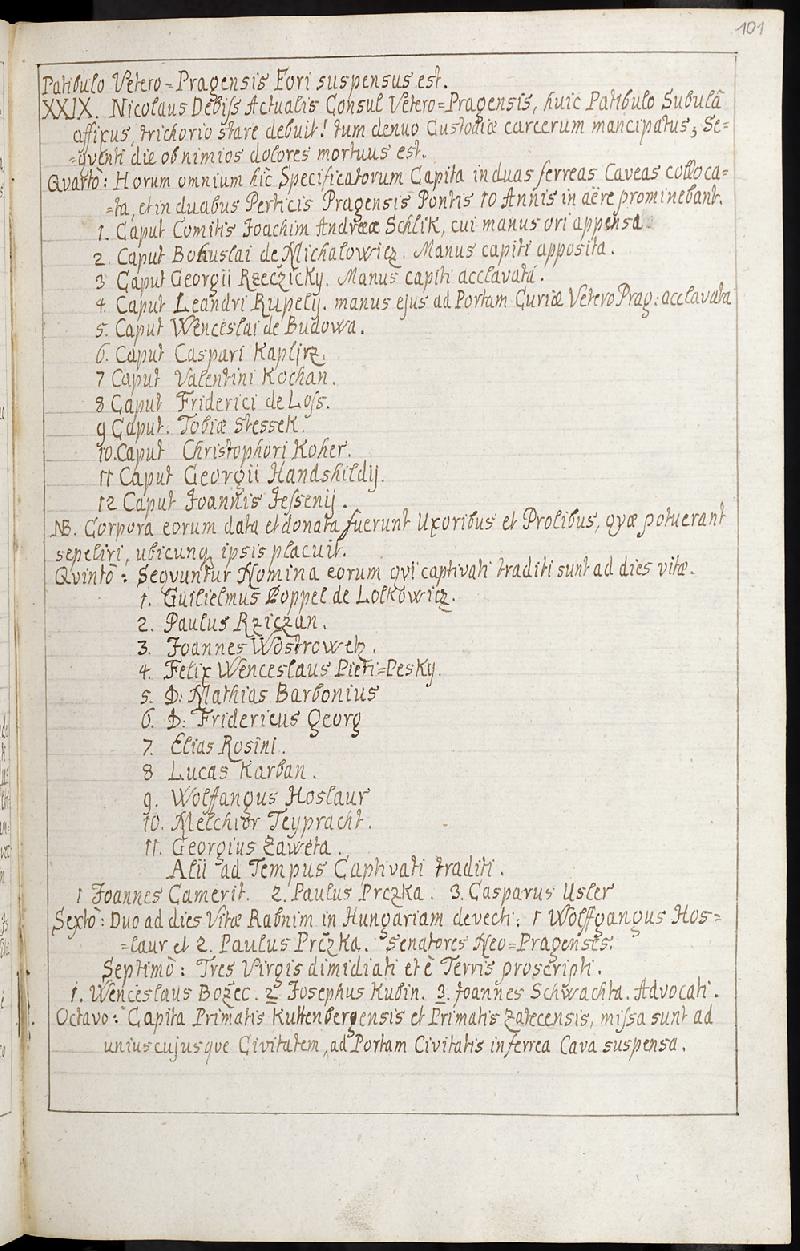 101
Patibulo Vetero=Pragensis Fori suspensus est.
XXIX. Nicolaus Debiss Actualis Consul Vetero=Pragensis, huic Patibulo Subulâ
affixus, trihorio stare debuit! tum denuo Custodiæ carcerum mancipatus, Se=
=qventi die ob nimios dolores mortuus est.
Qvartò: Horum omnium hîc Specificatorum Capita in duas ferreas Caveas colloca=
=ta, et in duabus Perticis Pragensis Pontis 10 Annis in aëre prominebant.
1. Caput Comitis Joachim Andreæ Schlik, cui manus ori appensa.
2. Caput Bohuslai de Michalowicz. Manus capiti apposita.
3 Caput Georgii Rzeczicky. Manus capiti acclavata.
4. Caput Leandri Rupely. manus ejus ad Portam Curiæ Vetero Prag: acclavata
5. Caput Wenceslai de Budowa.
6. Caput Caspari Kaplirz.
7 Caput Valentini Kochan.
8 Caput Friderici de Loss.
9 Caput. Tobiæ Stessek.
10. Caput Christophori Koher.
11 Caput Georgii Handshildij.
12 Caput Joannis Jessenij.
NB. Corpora eorum data et donata fuerunt Uxoribus et Prolibus, qvæ potuerant
sepeliri, ubicunq, ipsis placuit.
Qvintò: Seqvuntur Nomina eorum qvi captivati traditi sunt ad dies vitæ.
1. Guilielmus Poppel de Lolkowicz.
2. Paulus Rziczan.
3. Joannes Wostrowetz.
4. Felix Wenceslaus Pieti=Pesky.
5. D: Mathias Barbonius
6. D: Fridericus Georg
7. Elias Rosini.
8 Lucas Karban.
9. Wolfangus Hoslaur
10. Melchior Teypracht.
11. Georgius Zaweta.
Alii ad Tempus Captivati traditi.
1 Joannes Camerit. 2. Paulus Prczka. 3. Casparus Usler
Sextò: Duo ad dies Vitæ Rabnim in Hungariam devecti: 1 Wolffgangus Hos=
=laur et 2. Paulus Prczka. Senatores Neo=Pragenses:
Septimò: Tres Virgis dimidiati et è Terris proscripti.
1. Wenceslaus Bozec. 2 Josephus Kubin. 3. Joannes Schwachta. Advocati.
Octavo: Capita Primatis Kuttenbergensis et Primatis Zatecensis, missa sunt ad
uniuscujusqve Civitatem, ad Portam Civitatis in ferrea Cava suspensa.